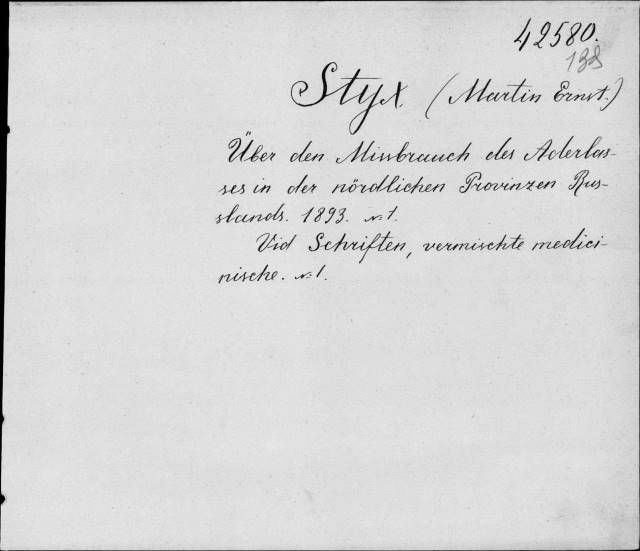 42580.
138
Styx (Martin Ernst.)
Über den Missbrauch des Aderlas-
ses in der nördlichen Provinzen Rus-
slands. 1893. №1.
Vid Schriften, vermischte medici-
nische. №1.